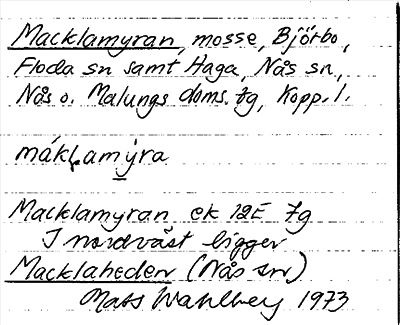 Macklamyran, mosse, Björbo,
Floda sn samt Haga, Nås sn,
Nås o. Malungs doms. tg, Kopp. l.
mákḷamỳra
Macklamyran ek 12E 7g
I nordväst ligger
Macklaheden (Nås sn)
Mats Wahlberg 1973